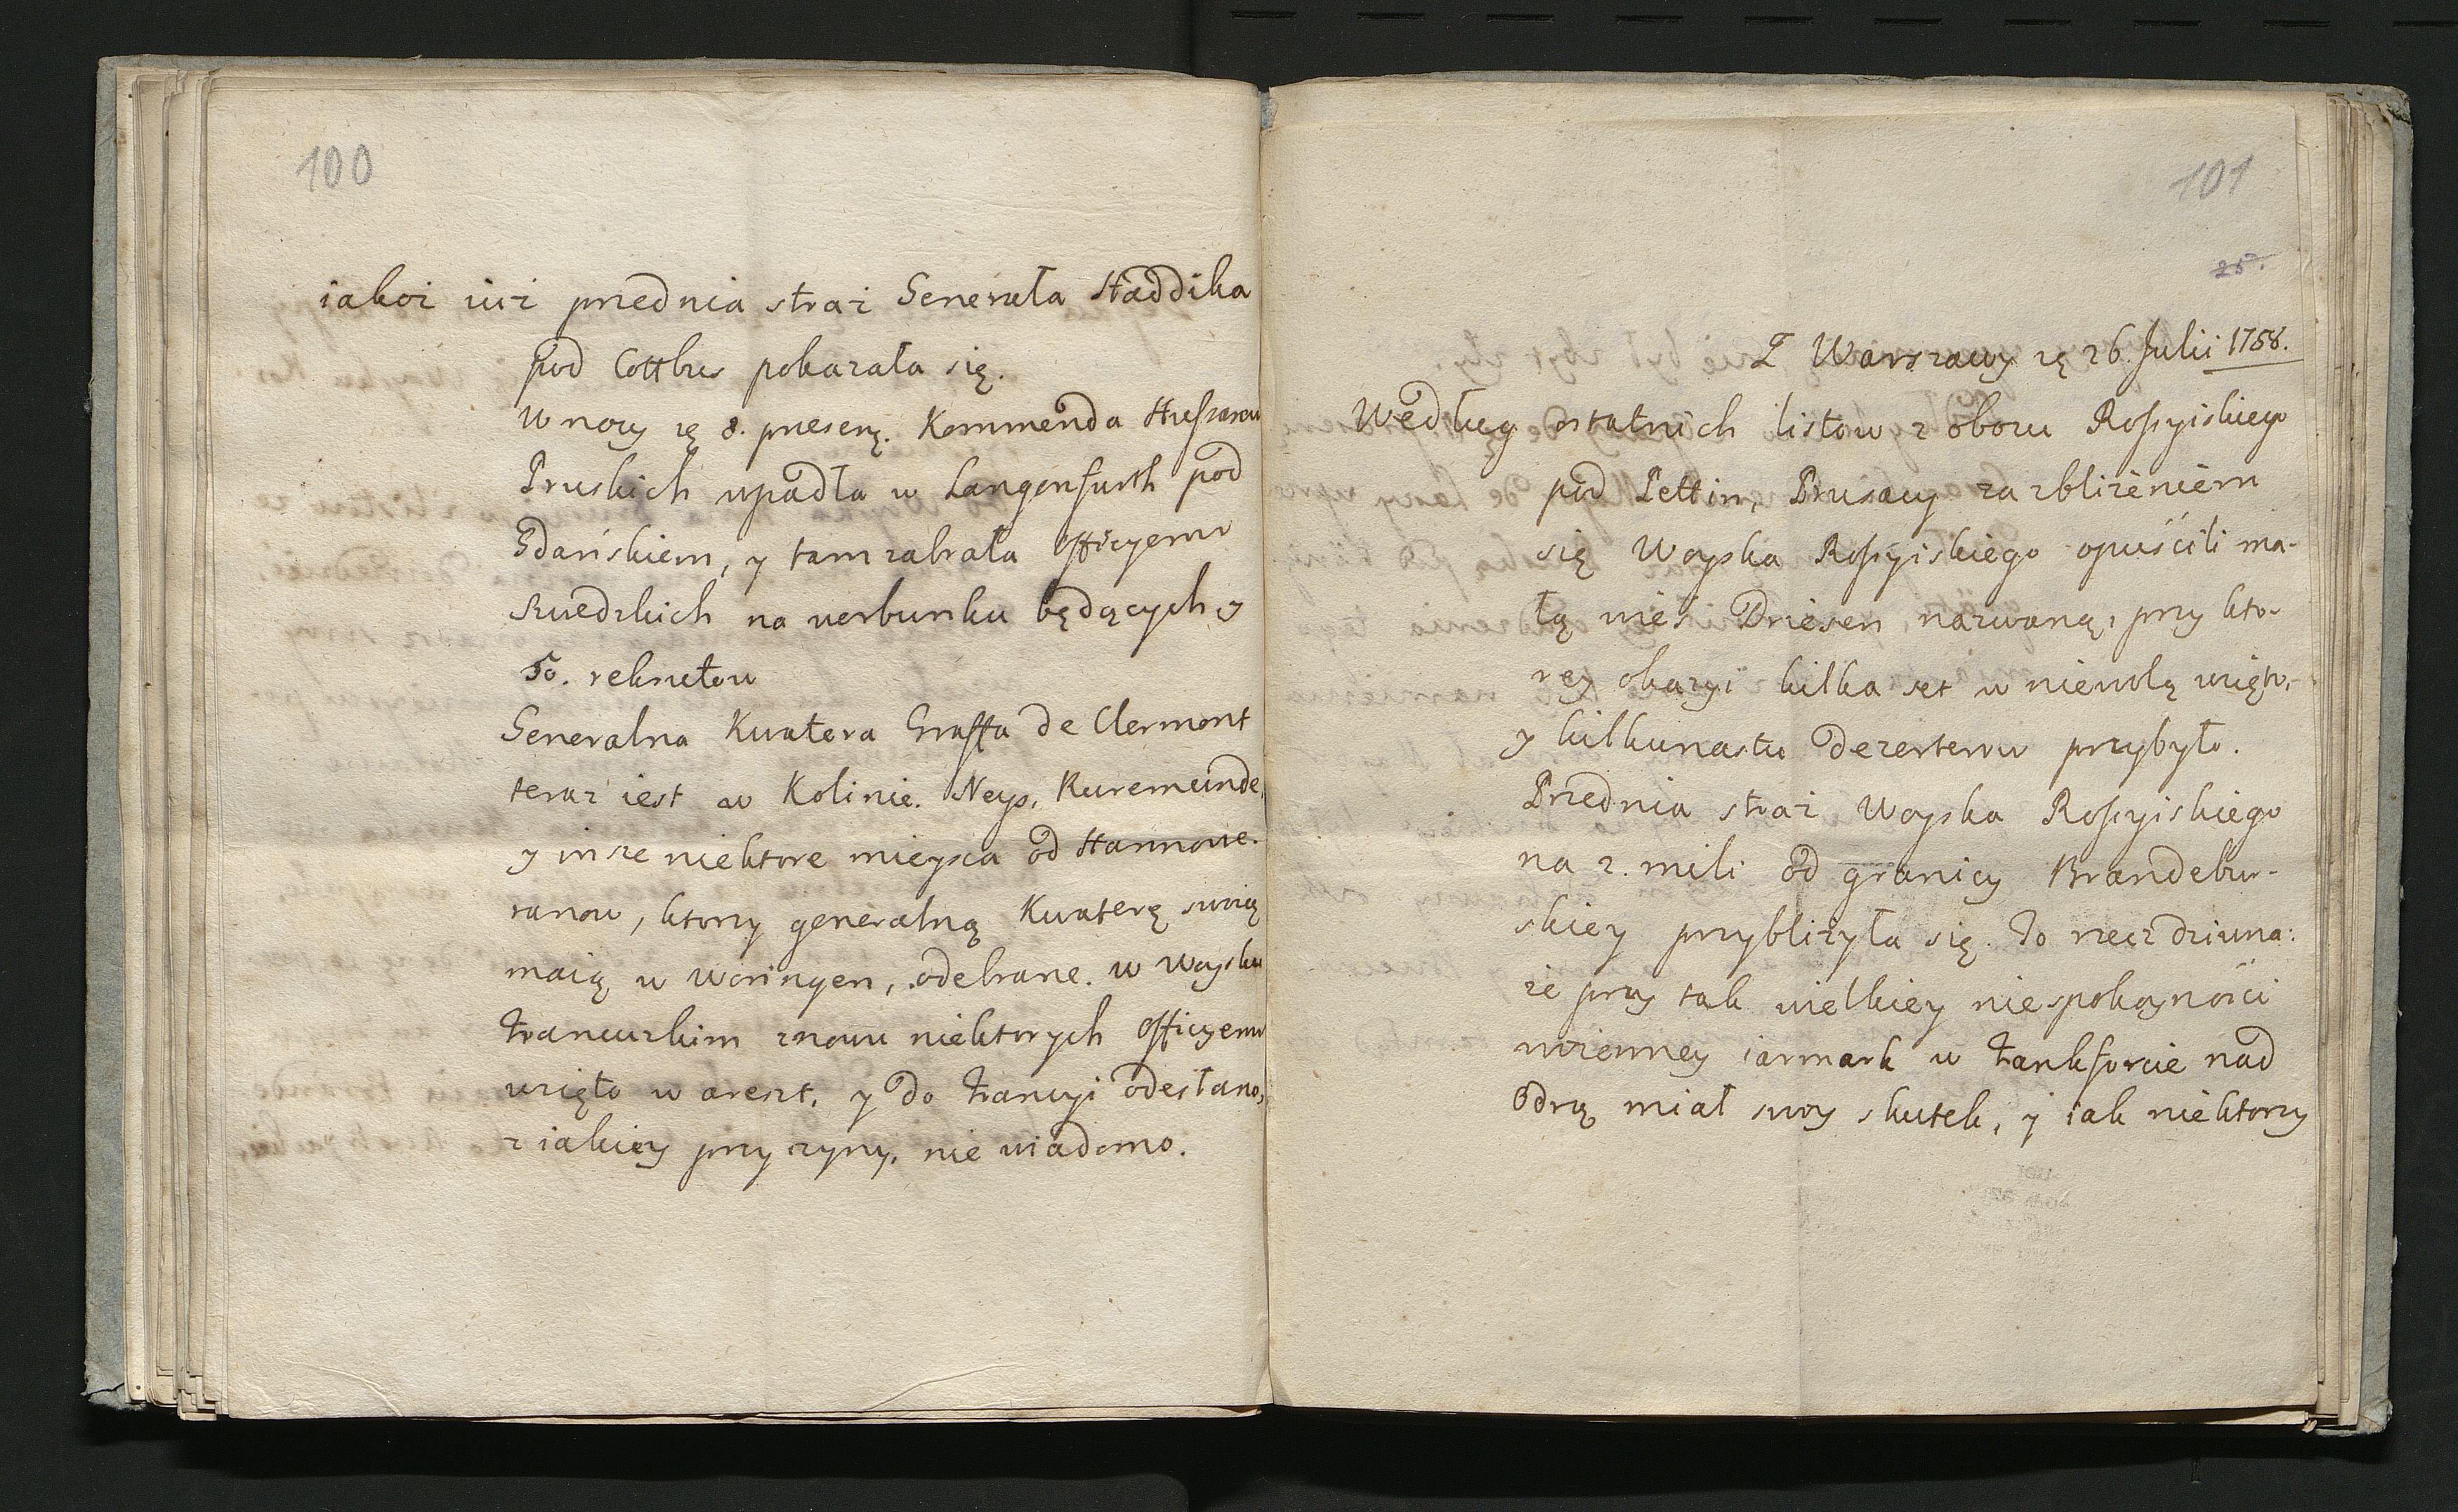 100
iakoż iuż przednia straż Generała Haddika
pod Cottbus pokazała się.
W nocy zę 8. præsentę. Kommenda Hussarow
Pruskich upadła w Langenfurth pod
Gdańskiem, y tam zabrała Officyerow
Szwedzkich na werbunku będących y
50. rekrutow
Generalna Kwatera Graffa de Clermont
teraz iest w Kolinie. Neys, Ruremunde,
y insze niektore mieysca od Hannowe-
ranow, ktorzy generalną Kwaterę swoią
maią w Woringen, odebrane. w Woysku
Francuzkim znowu niektorych Officyerow
wzięto w areszt, y do Francyi odesłano,
z iakiey przyczyny, nie wiadomo.
101
25.
Z Warszawy zę 26. Julii 1758.
Według ostatnich listow z obozu Rossyiskiego
pod Pettin, Prusacy za zbliżeniem
się Woyska Rossyiskiego opuścili ma-
łą wieś Driesen nazwaną, przy kto-
rey okazyi kilka set w niewolą wzięto,
y kilkunastu Dezerterow przybyło.
Przednia straż Woyska Rossyiskiego
na 2. mili od granicy Brandebur-
skiey przybliżyła się. To rzecz dziwna:
że przy tak wielkiey niespokoyności
woienney iarmark w Frankforcie nad
Odrą miał swoy skutek, y iak niektorzy